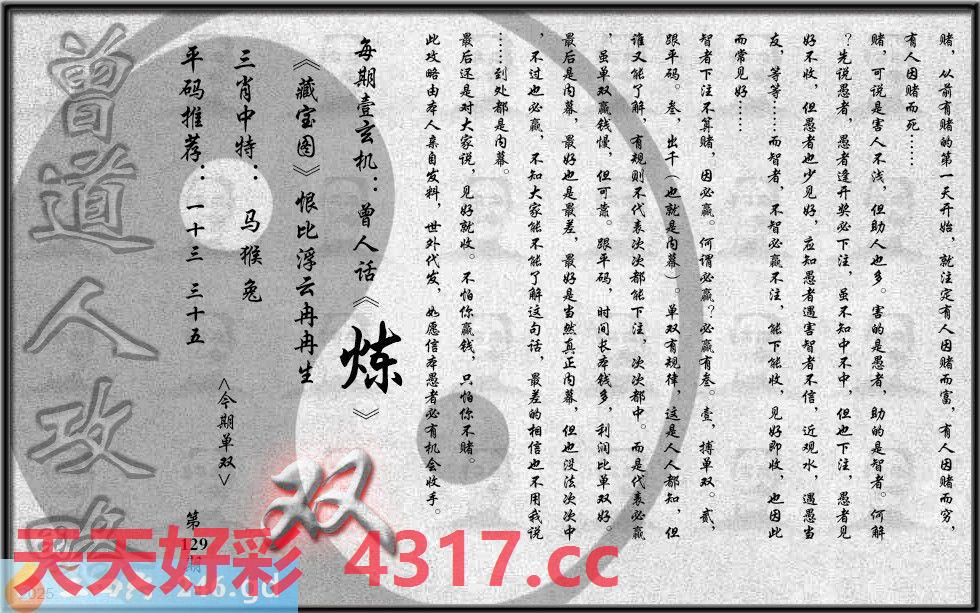 赌，从前有赌的第一天开始，就注定有人因赌而富，有人因赌而穷，
有人因赌而死……
赌，可说是害人不浅，但助人也多。害的是愚者，助的是智者。何解
？先说愚者，愚者逢开奖必下注，虽不知中不中，但也下注，愚者见
好不收，但愚者也少见好，应知愚者遇害智者不信，近观水，遇愚当
友，等等……而智者，不智必赢不注，能下能收，见好即收，也因此
而常见好……
智者下注不算赌，因必赢。何谓必赢？必赢有叁。壹，搏单双。贰，
跟平码。叁，出千（也就是内幕）。单双有规律，这是人人都知，但
谁又能了解，有规则不代表次次都能下注，次次都中。而是代表必赢
，虽单双赢钱慢，但可靠。跟平码，时间长本钱多，利润比单双好。
最后是内幕，最好也是最差，最好是当然真正内幕，但也没法次次中
，不过也必赢，不知大家能不能了解这句话，最差的相信也不用我说
……到处都是内幕。
最后还是对大家说，见好就收。不怕你赢钱，只怕你不赌。
此攻略由本人亲自发料，世外代发，如愿信本愚者必有机会收手。
每期壹玄机：曾人话《炼》
《藏宝图》恨比浮云冉冉生
三肖中特：马猴兔
平码推荐：一十三 三十五
<今期单双>
双
第129期
曾道人攻略
天天好彩 4317.cc
2025